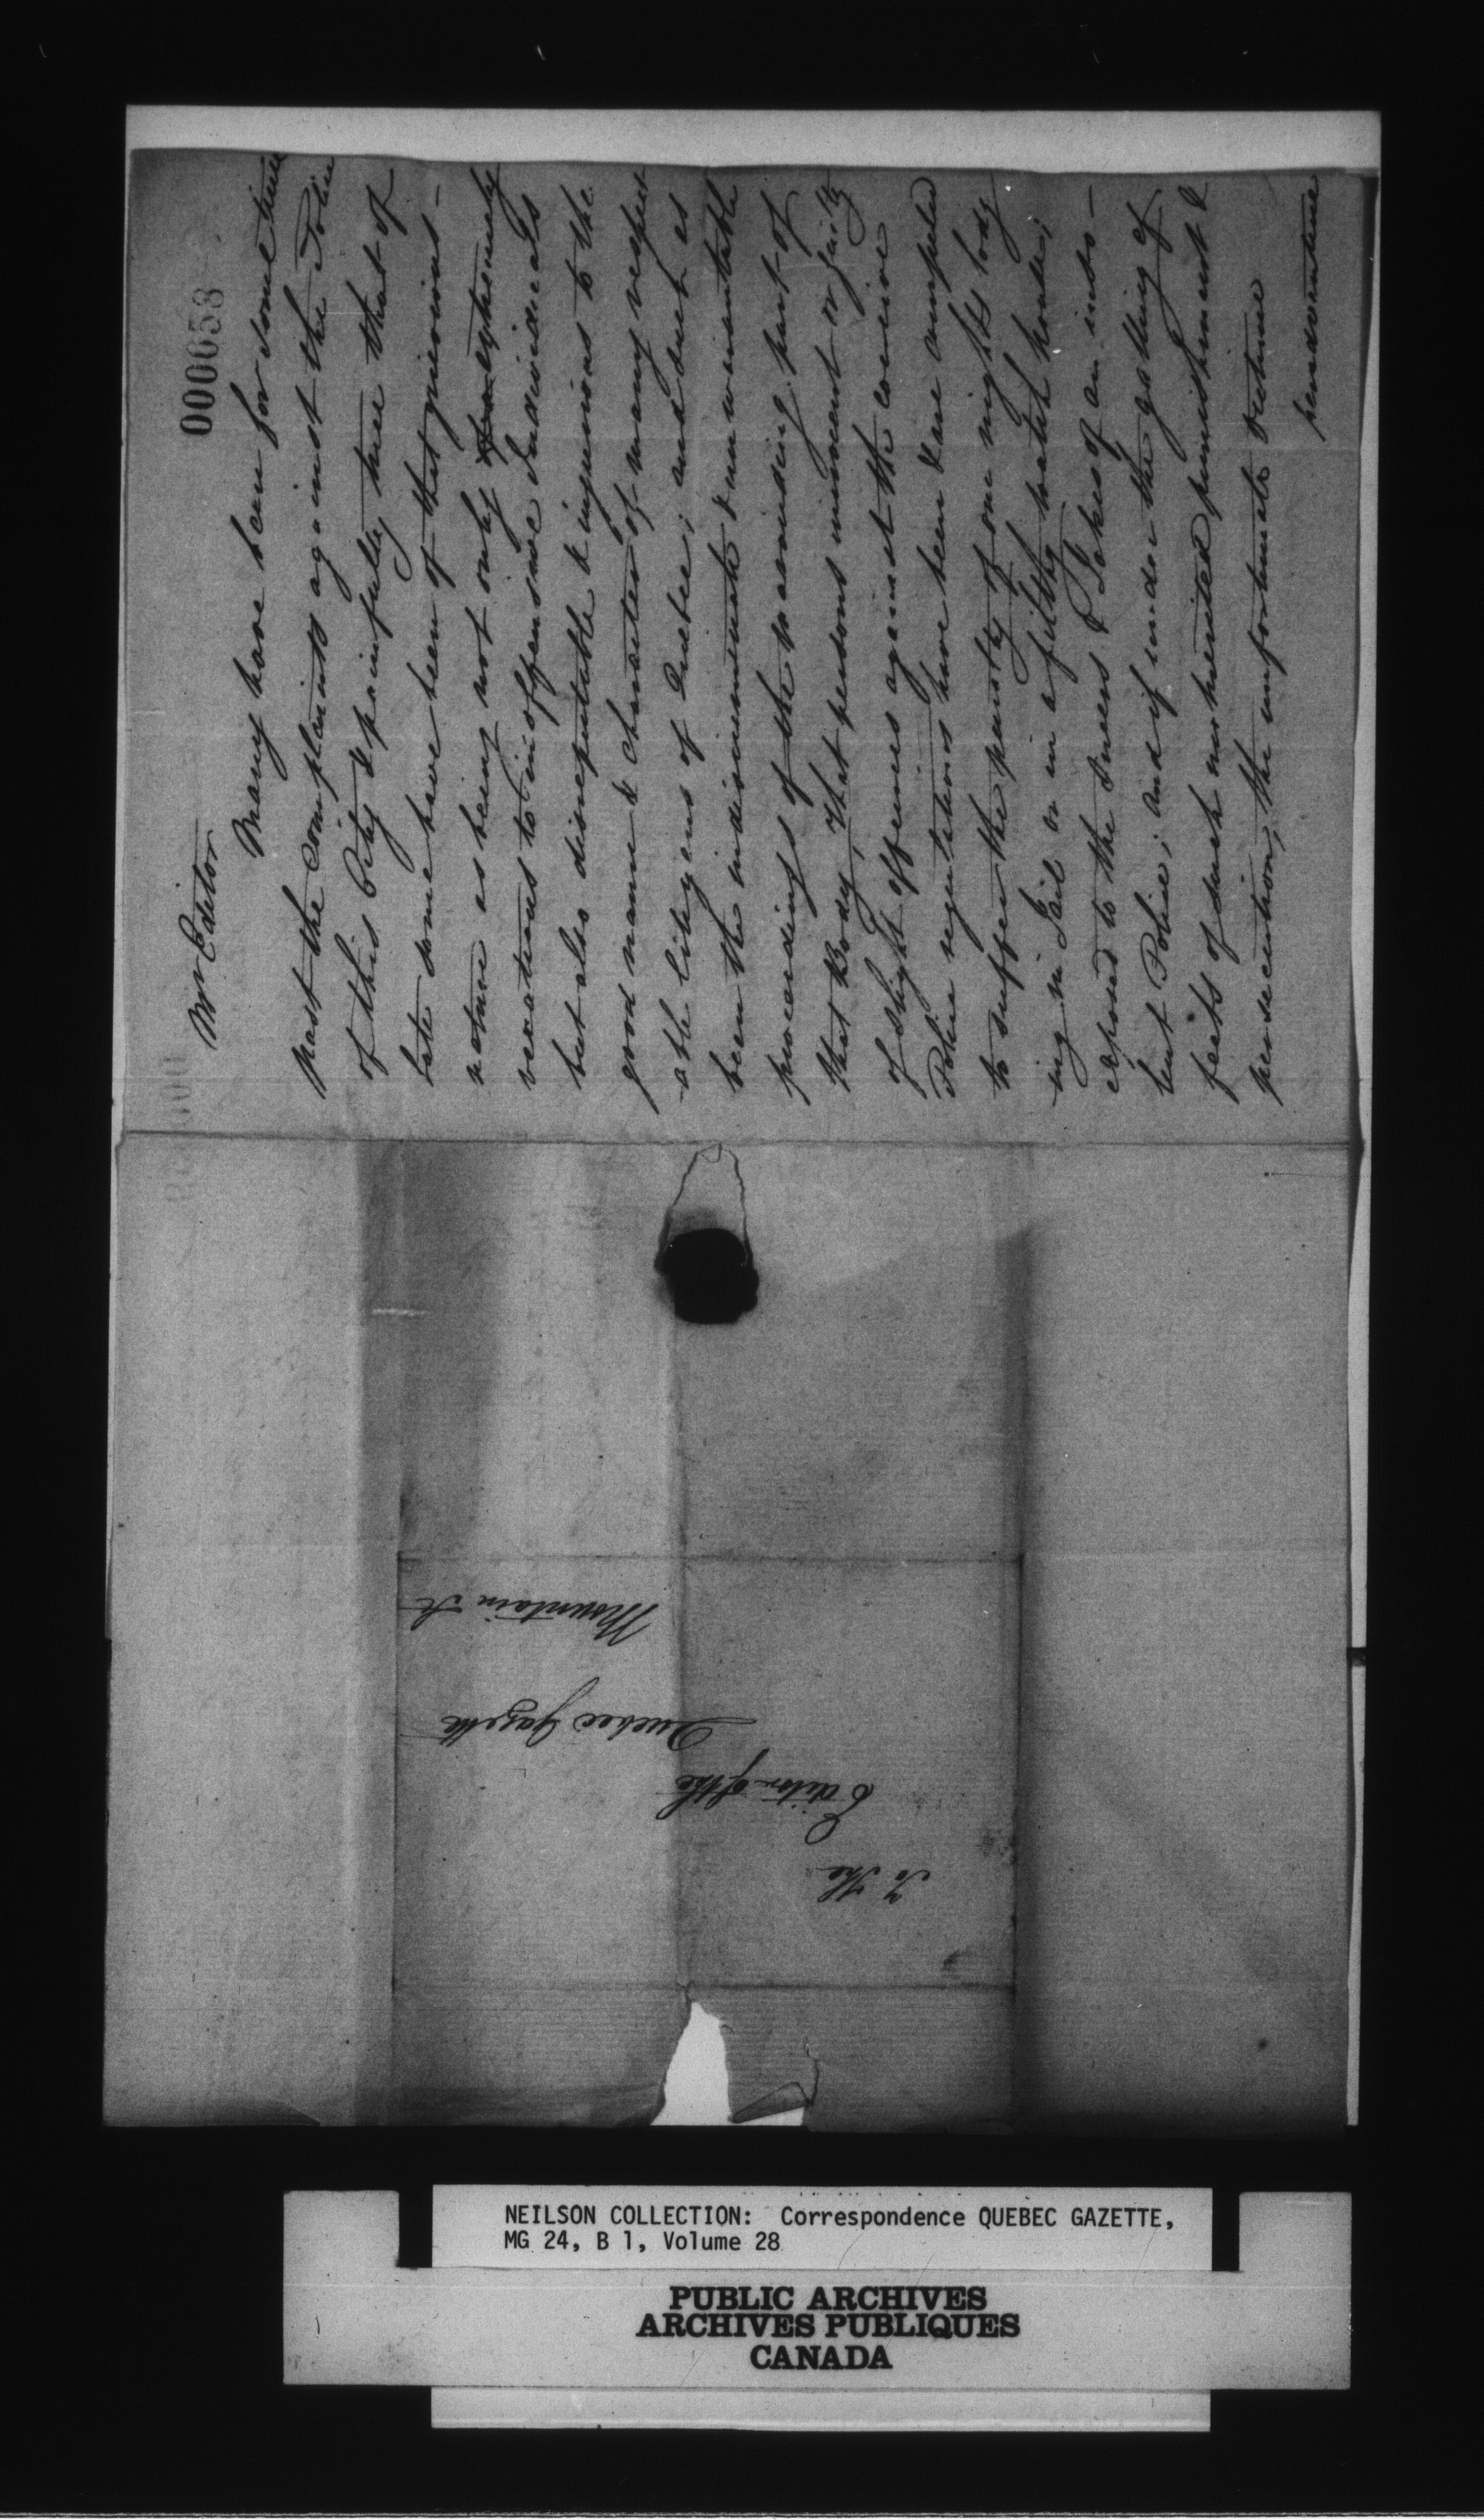 000053
Mr Editor
Many have been for some time
past the complaints against the Police
of this City & painfully true that of
late some have been of that grievous-
nature as being not only extremely
vexatious to inoffensive Individuals
but also disreputable & injurious to the
good name & character of many respect
able Citizens of Quebec; and such as
been the indiscriminate & unwarrantable
proceedings of the part of
that Body, that persons innocent or guilty
of slight offences against the coercive
Police regulations have been & are compelled
to suffer the penalty of one nights lodg
ing in Jail or in a filthy watch house;
exposed to the sneers & Jokes of an inso-
lent Police; and if under the goading of
feels of such unmerited punishment &
persecution, the unfortunate victime
peradventure
To the
Editor of the
Quebec Gazette
Mountain St
NEILSON COLLECTION: Correspondence QUEBEC GAZETTE,
MG 24, B 1, Volume 28
PUBLIC ARCHIVES
ARCHIVES PUBLIQUES
CANADA